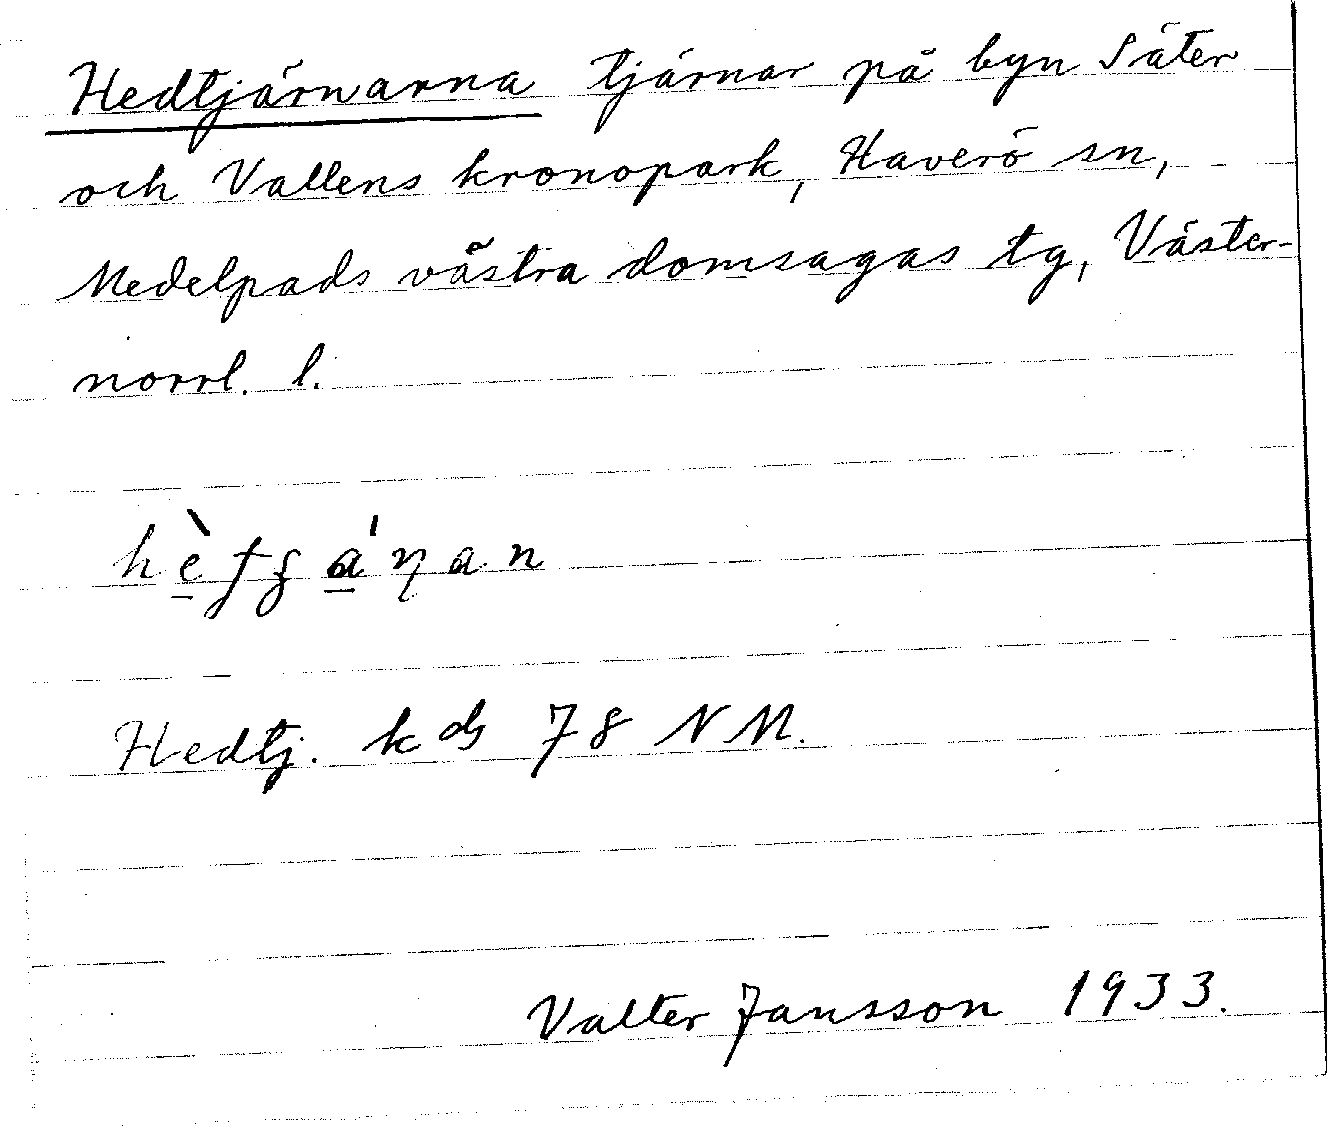 Hedtjärnarna tjärnar på byn Säter
och Vallens kronopark, Haverö sn,
Medelpads västra domsagas tg, Väster-
norrl. l.
Hedtj. k ds 78 NM.
Valter Jansson 1933.